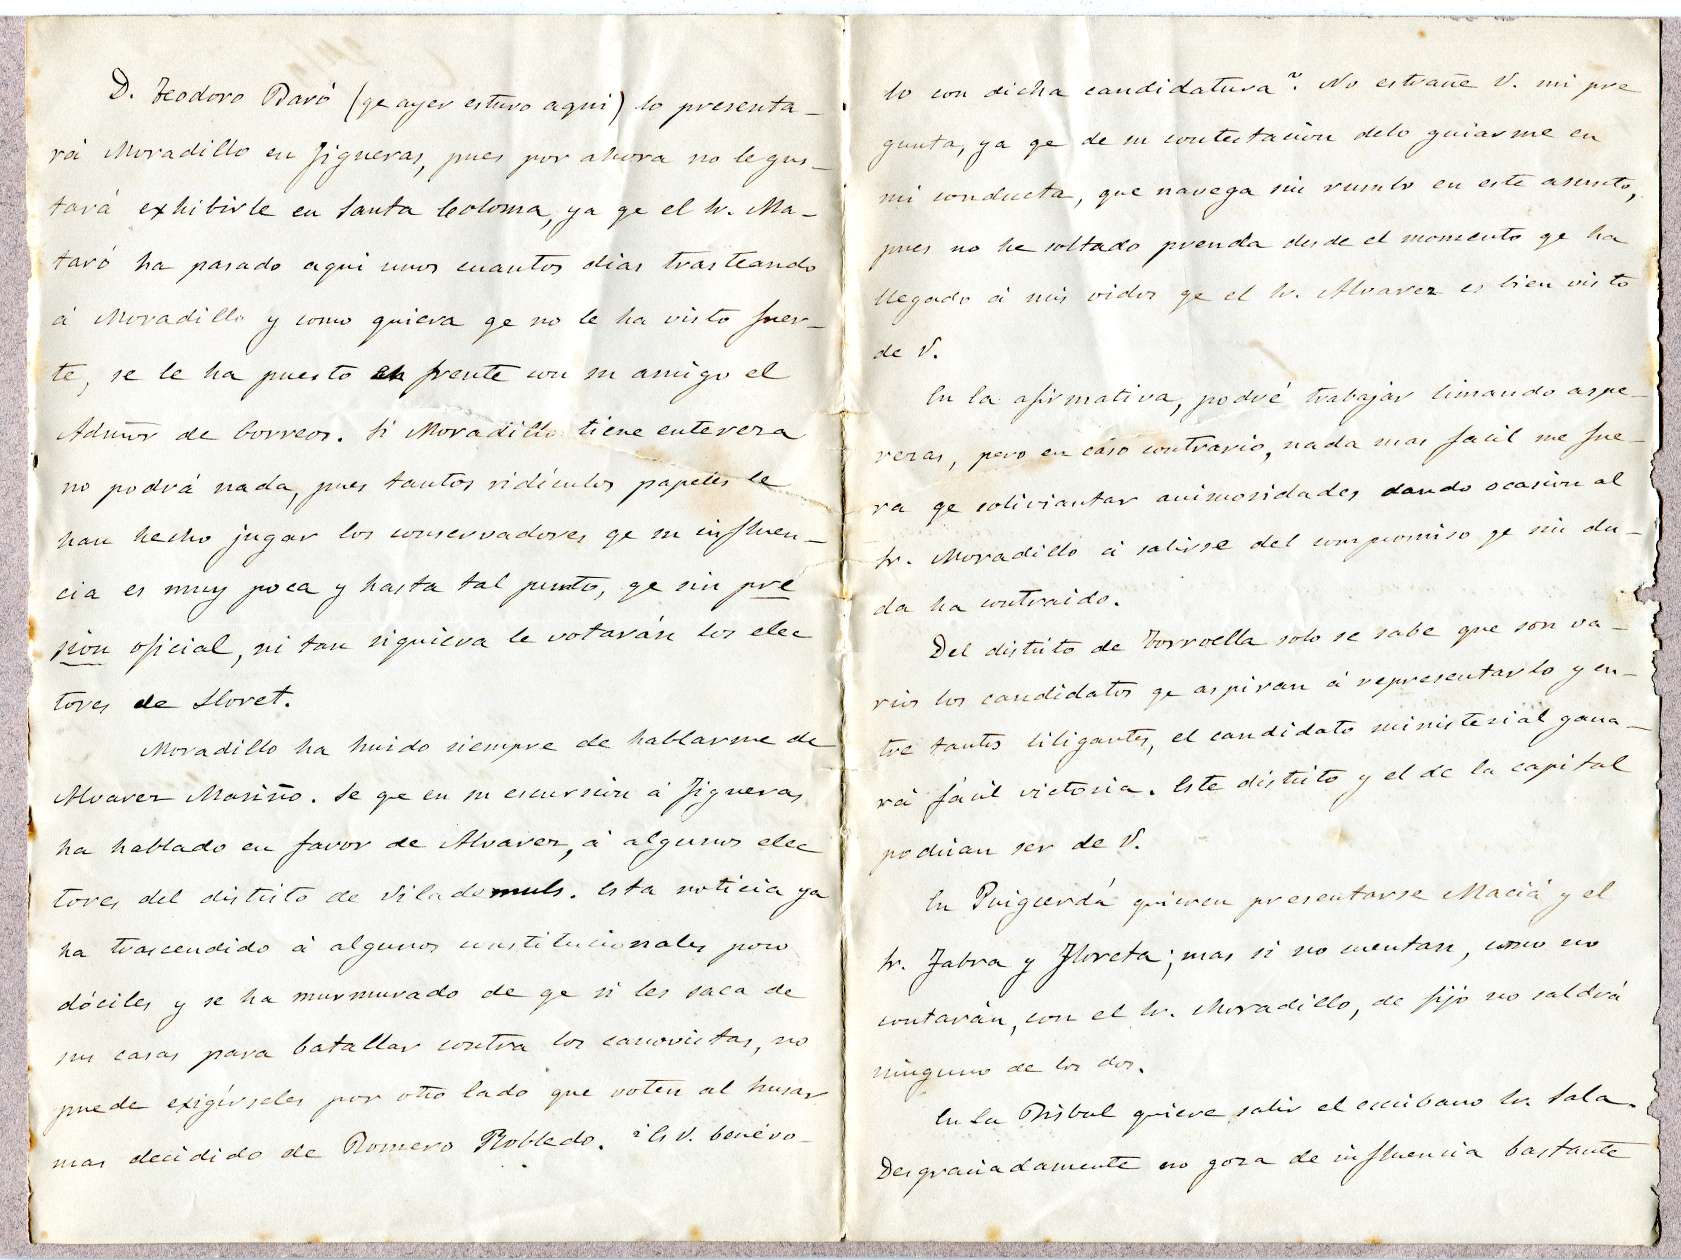 D. Teodoro Baró (qe ayer estuvo aqui) lo presenta-
rá Moradillo en Figueras, pues por ahora no le gus-
tará exhibirle en Santa Coloma, ya qe el Sr. Ma-
taró ha pasado aqui unos cuantos dias trasteando
á Moradillo y como quiera qe no le ha visto fuer-
te, se le ha puesto en frente con su amigo el
Admor de Correos. Si Moradillo tiene entereza
no podrá nada, pues tantos ridículos papeles le
han hecho jugar los conservadores qe su influen-
cia es muy poca y hasta tal punto, qe sin pre
sión oficial, ni tan siquiera le votarán los elec
tores de Lloret.
Moradillo ha huido siempre de hablarme de
Alvarez Mariño. Se qe en su escursión á Figueras
ha hablado en favor de Alvarez, á algunos elec
tores del distrito de Vilademuls. Esta noticia ya
ha trascendido á algunos constitucionales poco
dóciles y se ha murmurado de qe si les saca de
sus casas para batallar contra los canovistas, no
puede exigírseles por otro lado que voten al husar
mas decidido de Romero Robledo. ¿Es V. benévo-
lo con dicha candidatura? No estrañe V. mi pre
gunta, ya qe de su contestación debo guiarme en
mi conducta, que navega sin rumbo en este asunto,
pues no he soltado prenda desde el momento qe ha
llegado á mis oidos qe el Sr. Alvarez es bien visto
de V.
En la afirmativa, podré trabajar limando aspe-
rezas, pero en cáso contrario, nada mas facil me fue-
ra qe soliviantar animosidades dando ocasion al
Sr. Moradillo á salirse del compromiso qe sin du-
da ha contraido.
Del distrito de Torroella solo se sabe que son va-
rios los candidatos qe aspiran á representarlo y en-
tre tantos litigantes, el candidato ministerial gana-
rá fácil victoria. Este distrito y el de la capital
podrian ser de V.
En Puigcerdá quieren presentarse Maciá y el
Sr. Fabra y Floreta; mas si no cuentan, como no
contarán, con el Sr. Moradillo, de fijo no saldrá
ninguno de los dos.
En La Bisbal quiere salir el escribano Sr. Sala.
Desgraciadamente no goza de influencia bastante